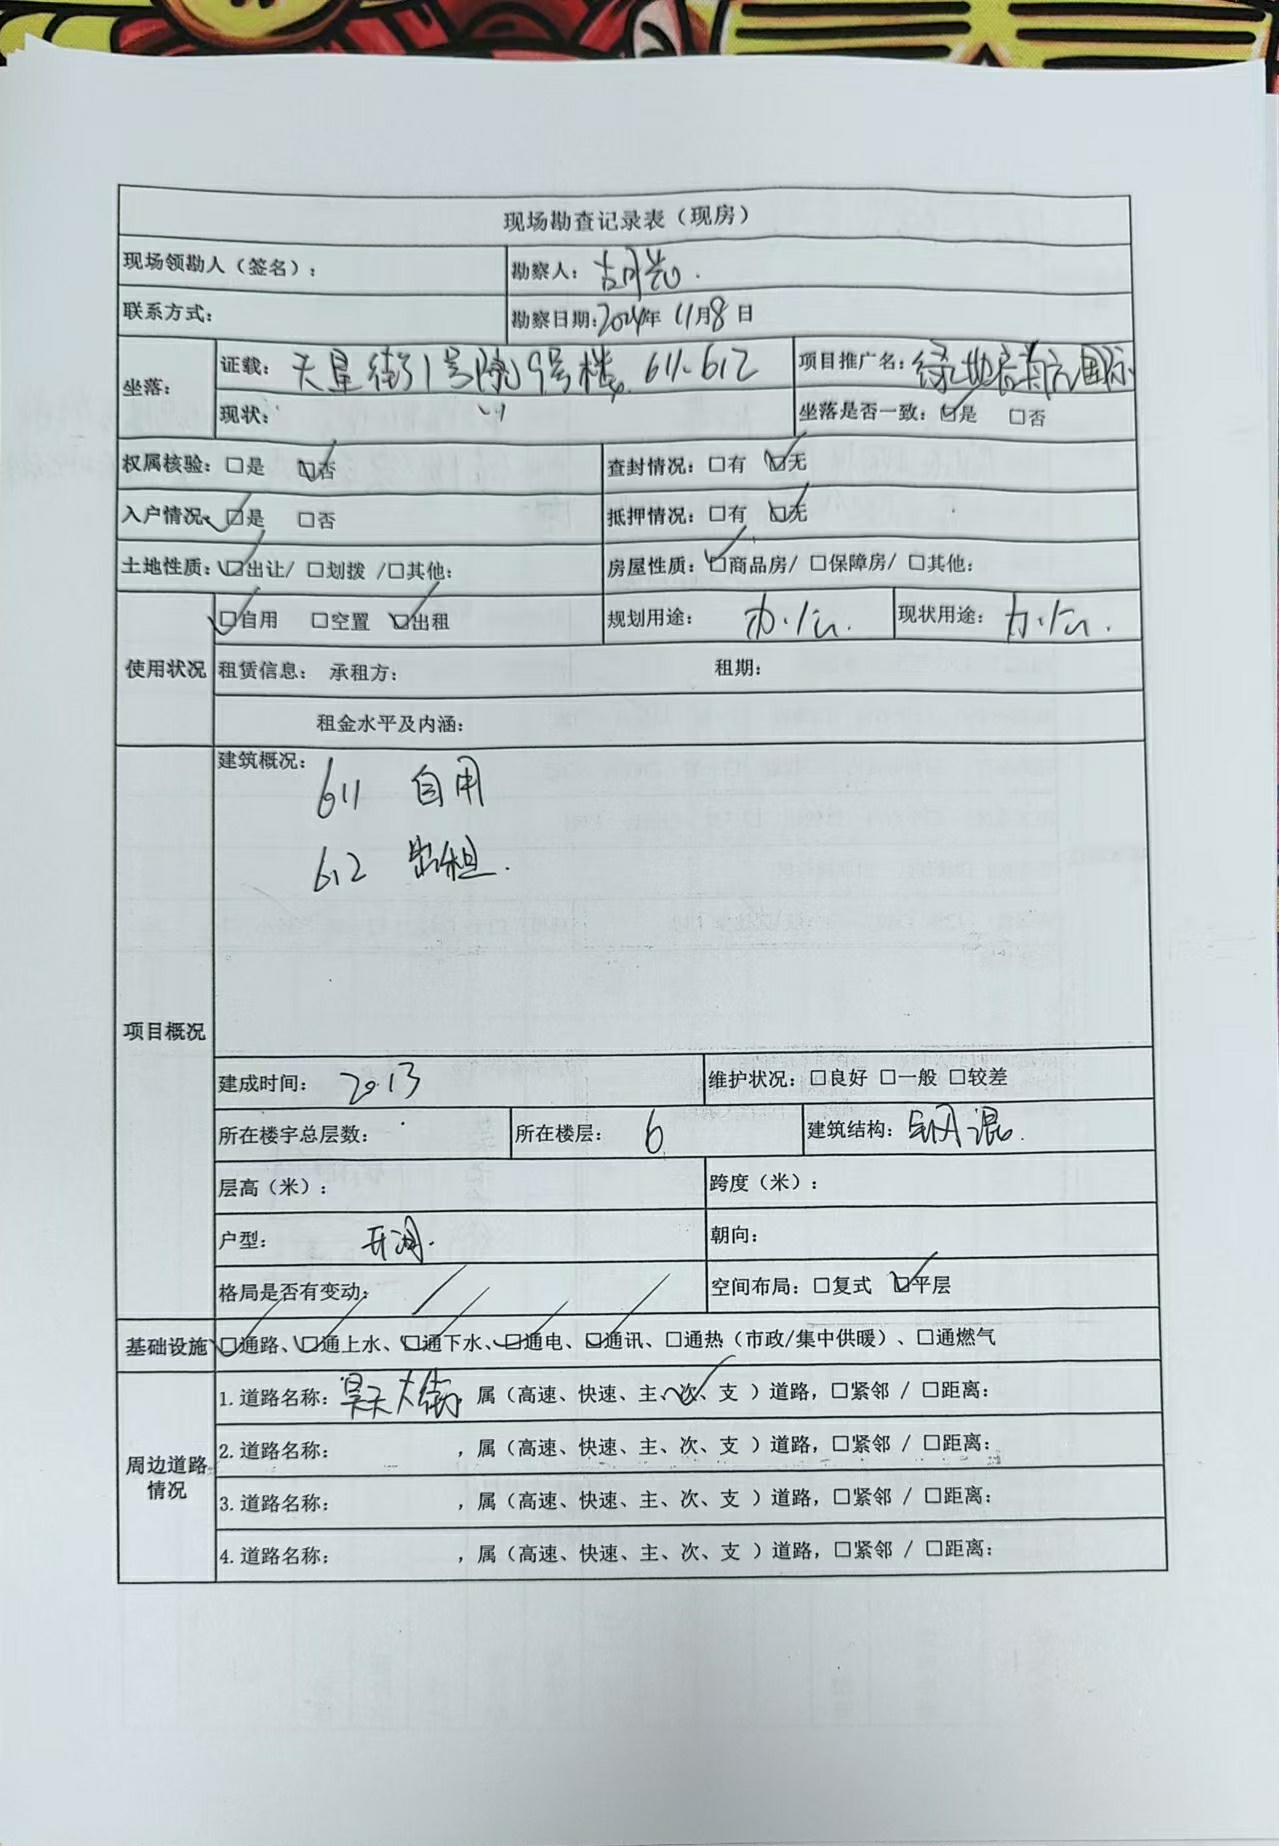 现场勘查记录表（现房）
现场领勘人（签名）： 勘察人：胡
联系方式： 勘察日期:2024年 11月8日
坐落： 证载：天星街1号院9号楼 611、612 项目推广名：绿地启航国际
现状： 〃 坐落是否一致：☑是 □否
权属核验：□是 ☑否 查封情况：□有 ☑无
入户情况：☑是 □否 抵押情况：□有 ☑无
土地性质：☑出让/ □划拨 /□其他： 房屋性质：☑商品房/ □保障房/ □其他：
使用状况 ☑自用 □空置 ☑出租 规划用途：办公. 现状用途：办公.
租赁信息： 承租方： 租期：
租金水平及内涵：
项目概况 建筑概况：
611 自用
612 出租.
建成时间：2013 维护状况：□良好 □一般 □较差
所在楼宇总层数： 所在楼层：6 建筑结构：钢混.
层高（米）： 跨度（米）：
户型：开间. 朝向：
格局是否有变动： / 空间布局：□复式 ☑平层
基础设施 ☑通路、☑通上水、☑通下水、☑通电、☑通讯、□通热（市政/集中供暖）、□通燃气
周边道路情况 1.道路名称：昊天大街，属（高速、快速、主、次✓、支 ）道路，□紧邻 / □距离：
2.道路名称： ，属（高速、快速、主、次、支 ）道路，□紧邻 / □距离：
3.道路名称： ，属（高速、快速、主、次、支 ）道路，□紧邻 / □距离：
4.道路名称： ，属（高速、快速、主、次、支 ）道路，□紧邻 / □距离：